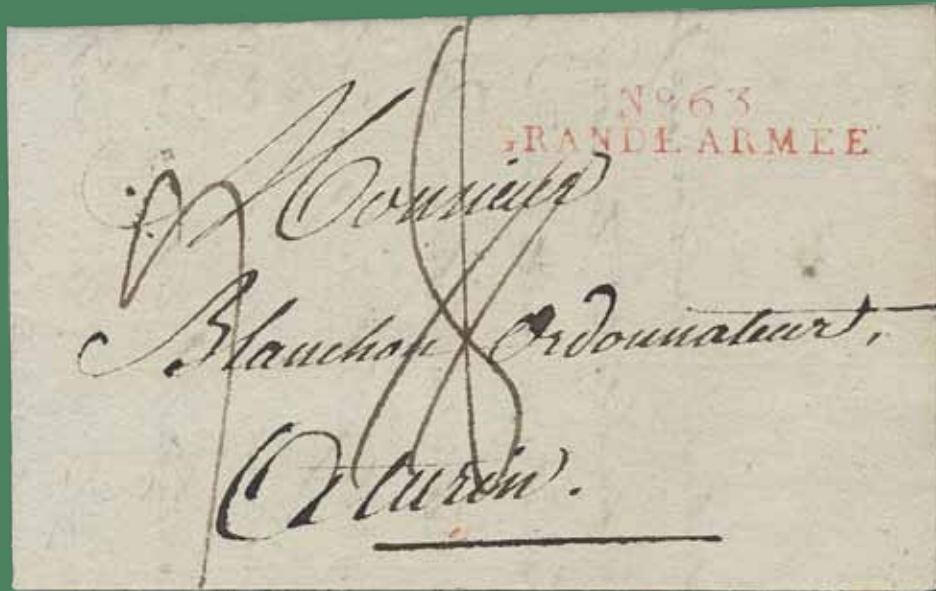 No 63
GRANDE ARMEE
Monsieur
Blanchon Ordonnateur,
A turin.